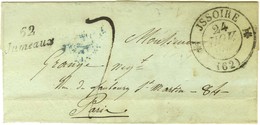 62
Jumeaux
ISSOIRE
24
(62)
Monsieur
Grange
rue du faubourg St Martin 84
Paris